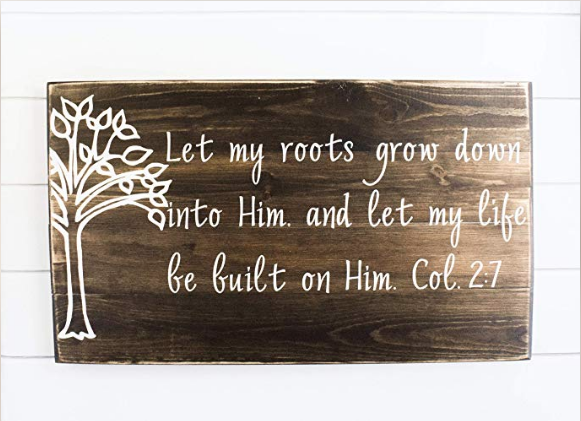 Let my roots grow down
into Him. and let my life
be built on Him. Col. 2:7